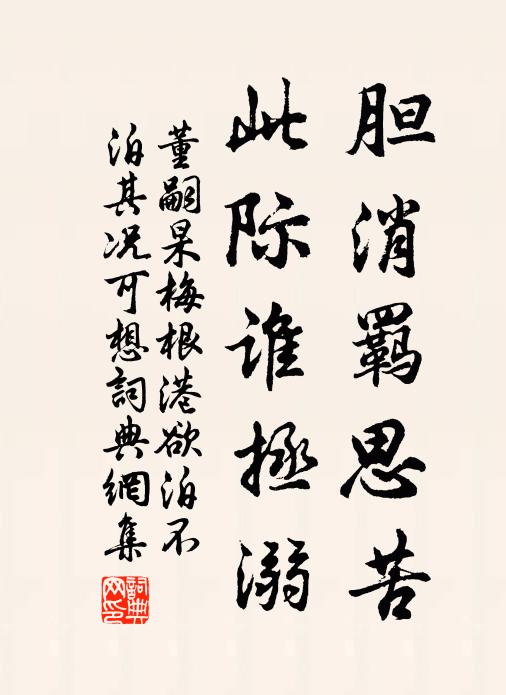 胆消羁思苦
此际谁拯溺
董嗣杲梅根港欲泊不
泊其况可想詞典網集
詞典网印